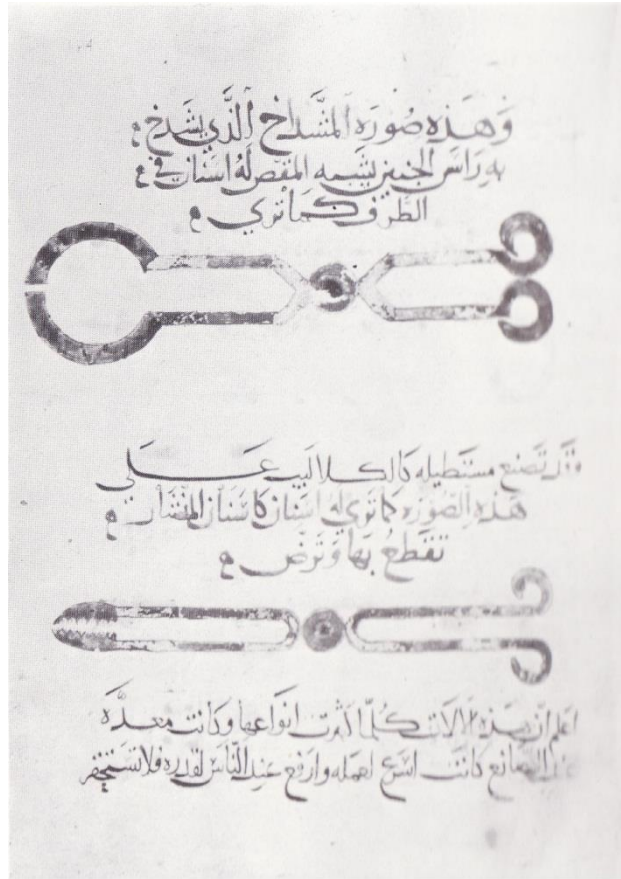 وَهَذِه صُورَة المشداخ الَّذي يشدَخ
بِهِ رَاسَ الجنين يشبه المقص لهُ اسنان في
الطرف كما تري
وقد تصنع مستطيله كالكلاليب عَلَى
هَذِه الصّورَه كما تري لهُ اسنان كاسنان المنشار
تقطعُ بهَا وَترضّ
اعلم انّ هذه الالات كلّما كثرت انواعها وكانت معدّه
عند الصانع كانت اسرع لعمله وارفع عند النّاس لقدره فلا تستحقر